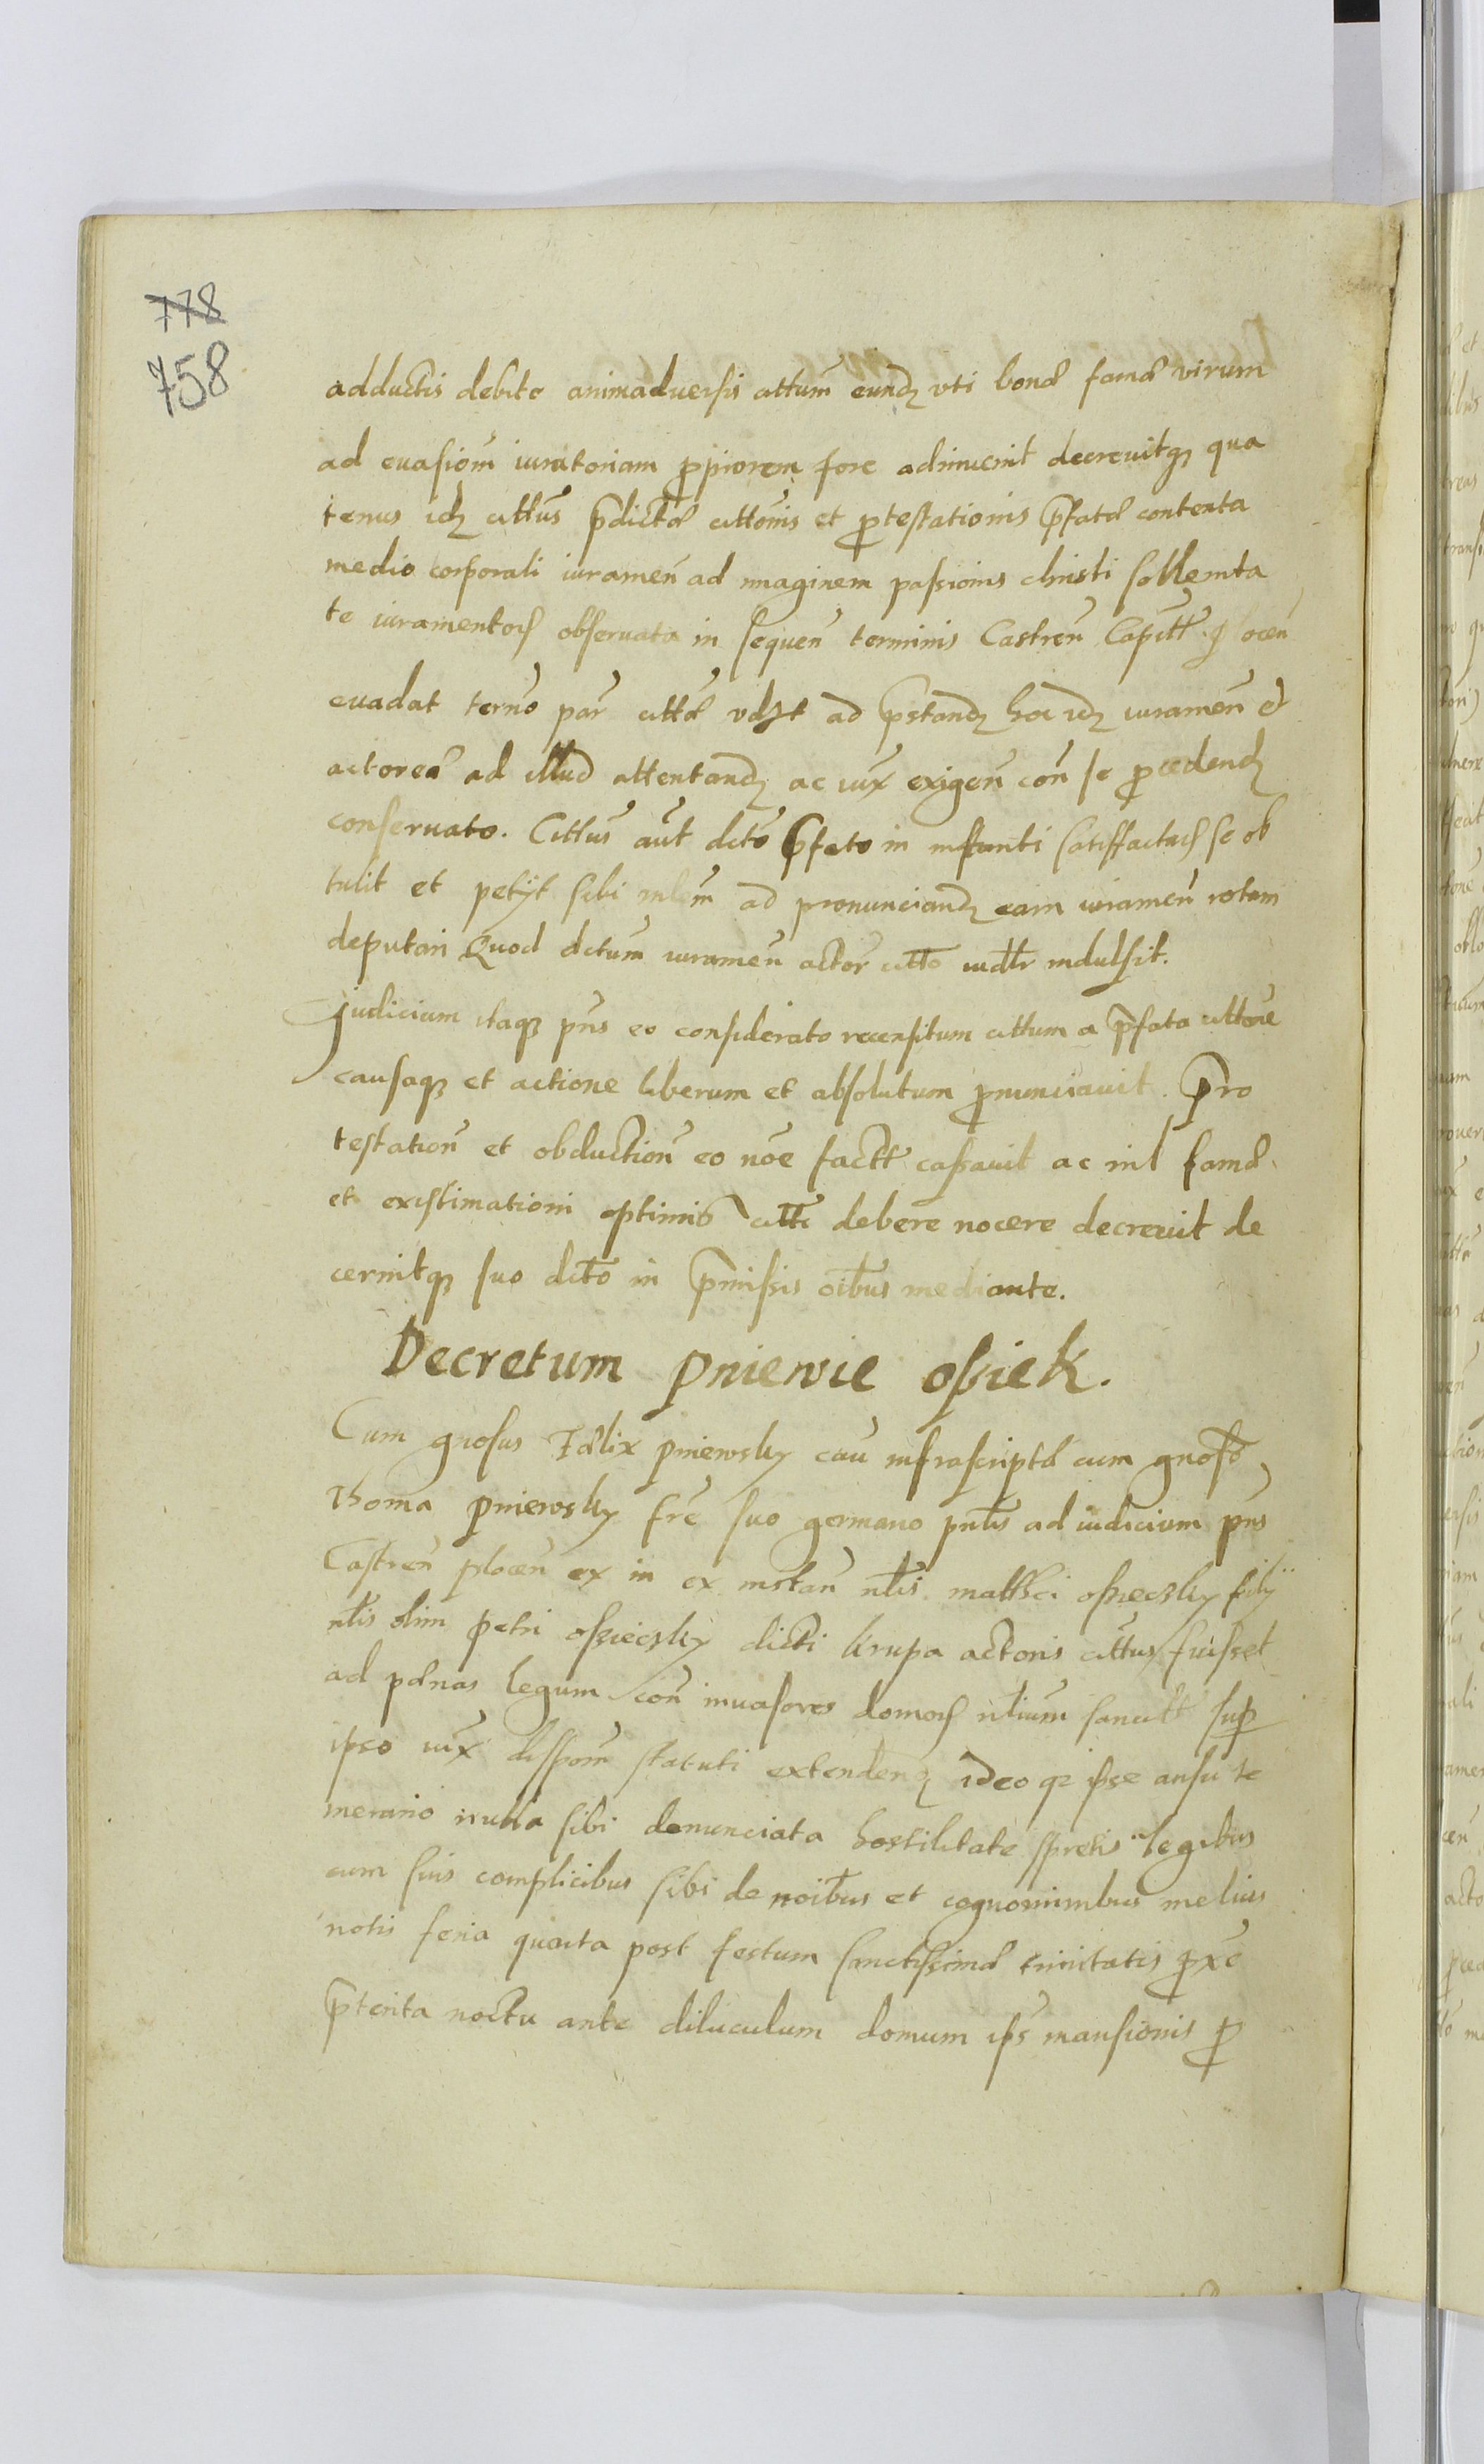 778
758
adductis debite animaduersis cittum eundꝫ vti bonæ famæ virum
ad euasiom̄ iuratoriam ꝓpiorem fore adinuenit decreuitqꝫ qua
tenus idꝫ cittus p̄dictæ cittonis et ꝓtestationis p̄fatæ contenta
medio corporali iuramen̄ ad imaginem passionis christi sollemnita
te iuramentoꝝ obseruata in sequen̄ terminis Castren̄ Capitt
euadat termo par cittæ vdꝫt ad p̄standꝫ hoc idꝫ iuramen̄ et
actorea ad illud attentandꝫ ac iux exigen̄ con̄ se ꝓcedendꝫ
conseruato. Cittus aut dcto p̄fato in instanti satisfactuꝝ se ob
tulit et petijt sibi ad pronunciandꝫ eam iuramen̄ rotam
deputari Quod dctum iuramen̄ actor citto iudtr indulsit.
Judicium itaqꝫ pn̄s eo considerato recensitum cittum a p̄fata cittone
causaqꝫ et actione liberum et absolutum ꝓnunciauit. Pro
testation̄ et obduction̄ eo noe̅ factt cassauit ac nil famæ
et existimationi optimis citti debere nocere decreuit de
cernitqꝫ suo dcto in p̄missis oibus mediante.
Decretum pniewie ossiek.
Cum gnosus Fælix pniewsky cau infrascripta cum gnoso
Thoma pniewsky frē suo germano pntis ad iudicium pn̄s
Castren̄ plocen̄ ex in ex instan̄ ntis matthei ossieczky filij
ntis olim petri ossieczky dicti krupa actoris cittus fuisset
ad pænas legum con̄ inuasores domoꝝ ntium sancitt suꝑ
ipso iux dispom̄ statuti extendenꝫ ideo qꝫ ipse ausu te
merario nulla sibi denunciata hostilitate spretis legibus
cum suis complicibus sibi de noibus et cognominibus melius
notis feria quarta post festum sanctissimæ trinitatis ꝓxe
p̄terita noctu ante diluculum domum ips̄ mansionis ꝓ